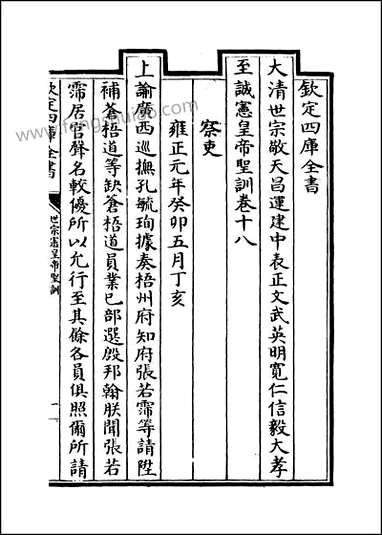 欽定四庫全書
大清世宗敬天昌運建中表正文武英明寬仁信毅大孝
至誠憲皇帝聖訓卷十八
察吏
雍正元年癸卯五月丁亥
上諭廣西巡撫孔毓珣據奏梧州府知府張若霈等請陞
補蒼梧道等缺蒼梧道員業已部選殷邦翰朕聞張若
霈居官聲名較優所以允行至其餘各員俱照爾所請
欽定四庫全書
世宗憲皇帝聖訓
一